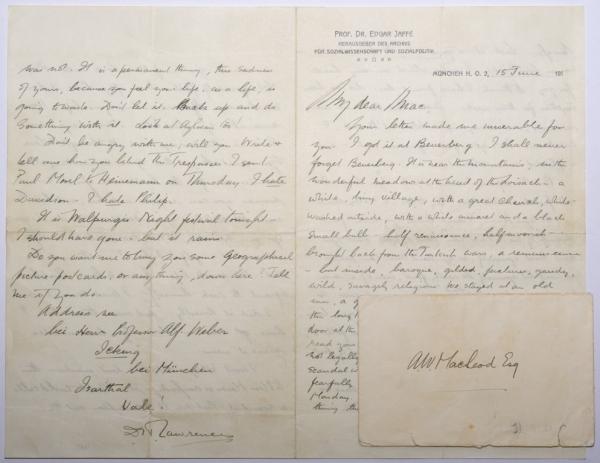 was not. It is a permanent thing, this sadness
of yours, because you feel your life, as a life, is
going to waste. Don't let it. Buck up and do
something with it. Look at Aylwin to!
Don't be angry with me, will you. Write &
tell me how you liked the Trespasser. I sent
Paul Morel to Heinemann on Thursday. I hate
Davidson — I hate Philip.
It is Walpurgis Night festival tonight —
I should have gone — but it rains.
Do you want me to buy you some Geographical
picture-postcards, or anything, down here? Tell
me if you do.
Address me
bei Herrn Professor Alf Weber
Icking
bei München
Isarthal
Vale!
D. H. Lawrence
PROF. DR. EDGAR JAFFÉ
HERAUSGEBER DES ARCHIVS
FÜR SOZIALWISSENSCHAFT UND SOZIALPOLITIK
MÜNCHEN H. O. 2, 15 June 191
My dear Mac
Your letter made me miserable for
you. I got it at Beuerberg. I shall never
forget Beuerberg. It is near the mountains, in the
wonderful meadows at the head of the Loisach — a
white, tiny village, with a great church, white-
washed outside, with a white minaret and a black
small bulb — half renaissance, half moorish —
brought back from the Turkish wars, a reminiscence
— but inside, baroque, gilded, pictures, gaudy,
wild, savagely religious. We stayed at an old
inn, a
the long
door at the
read you
not legally
scandal
fearfully
Monday
thing th
A W Macleod Esq